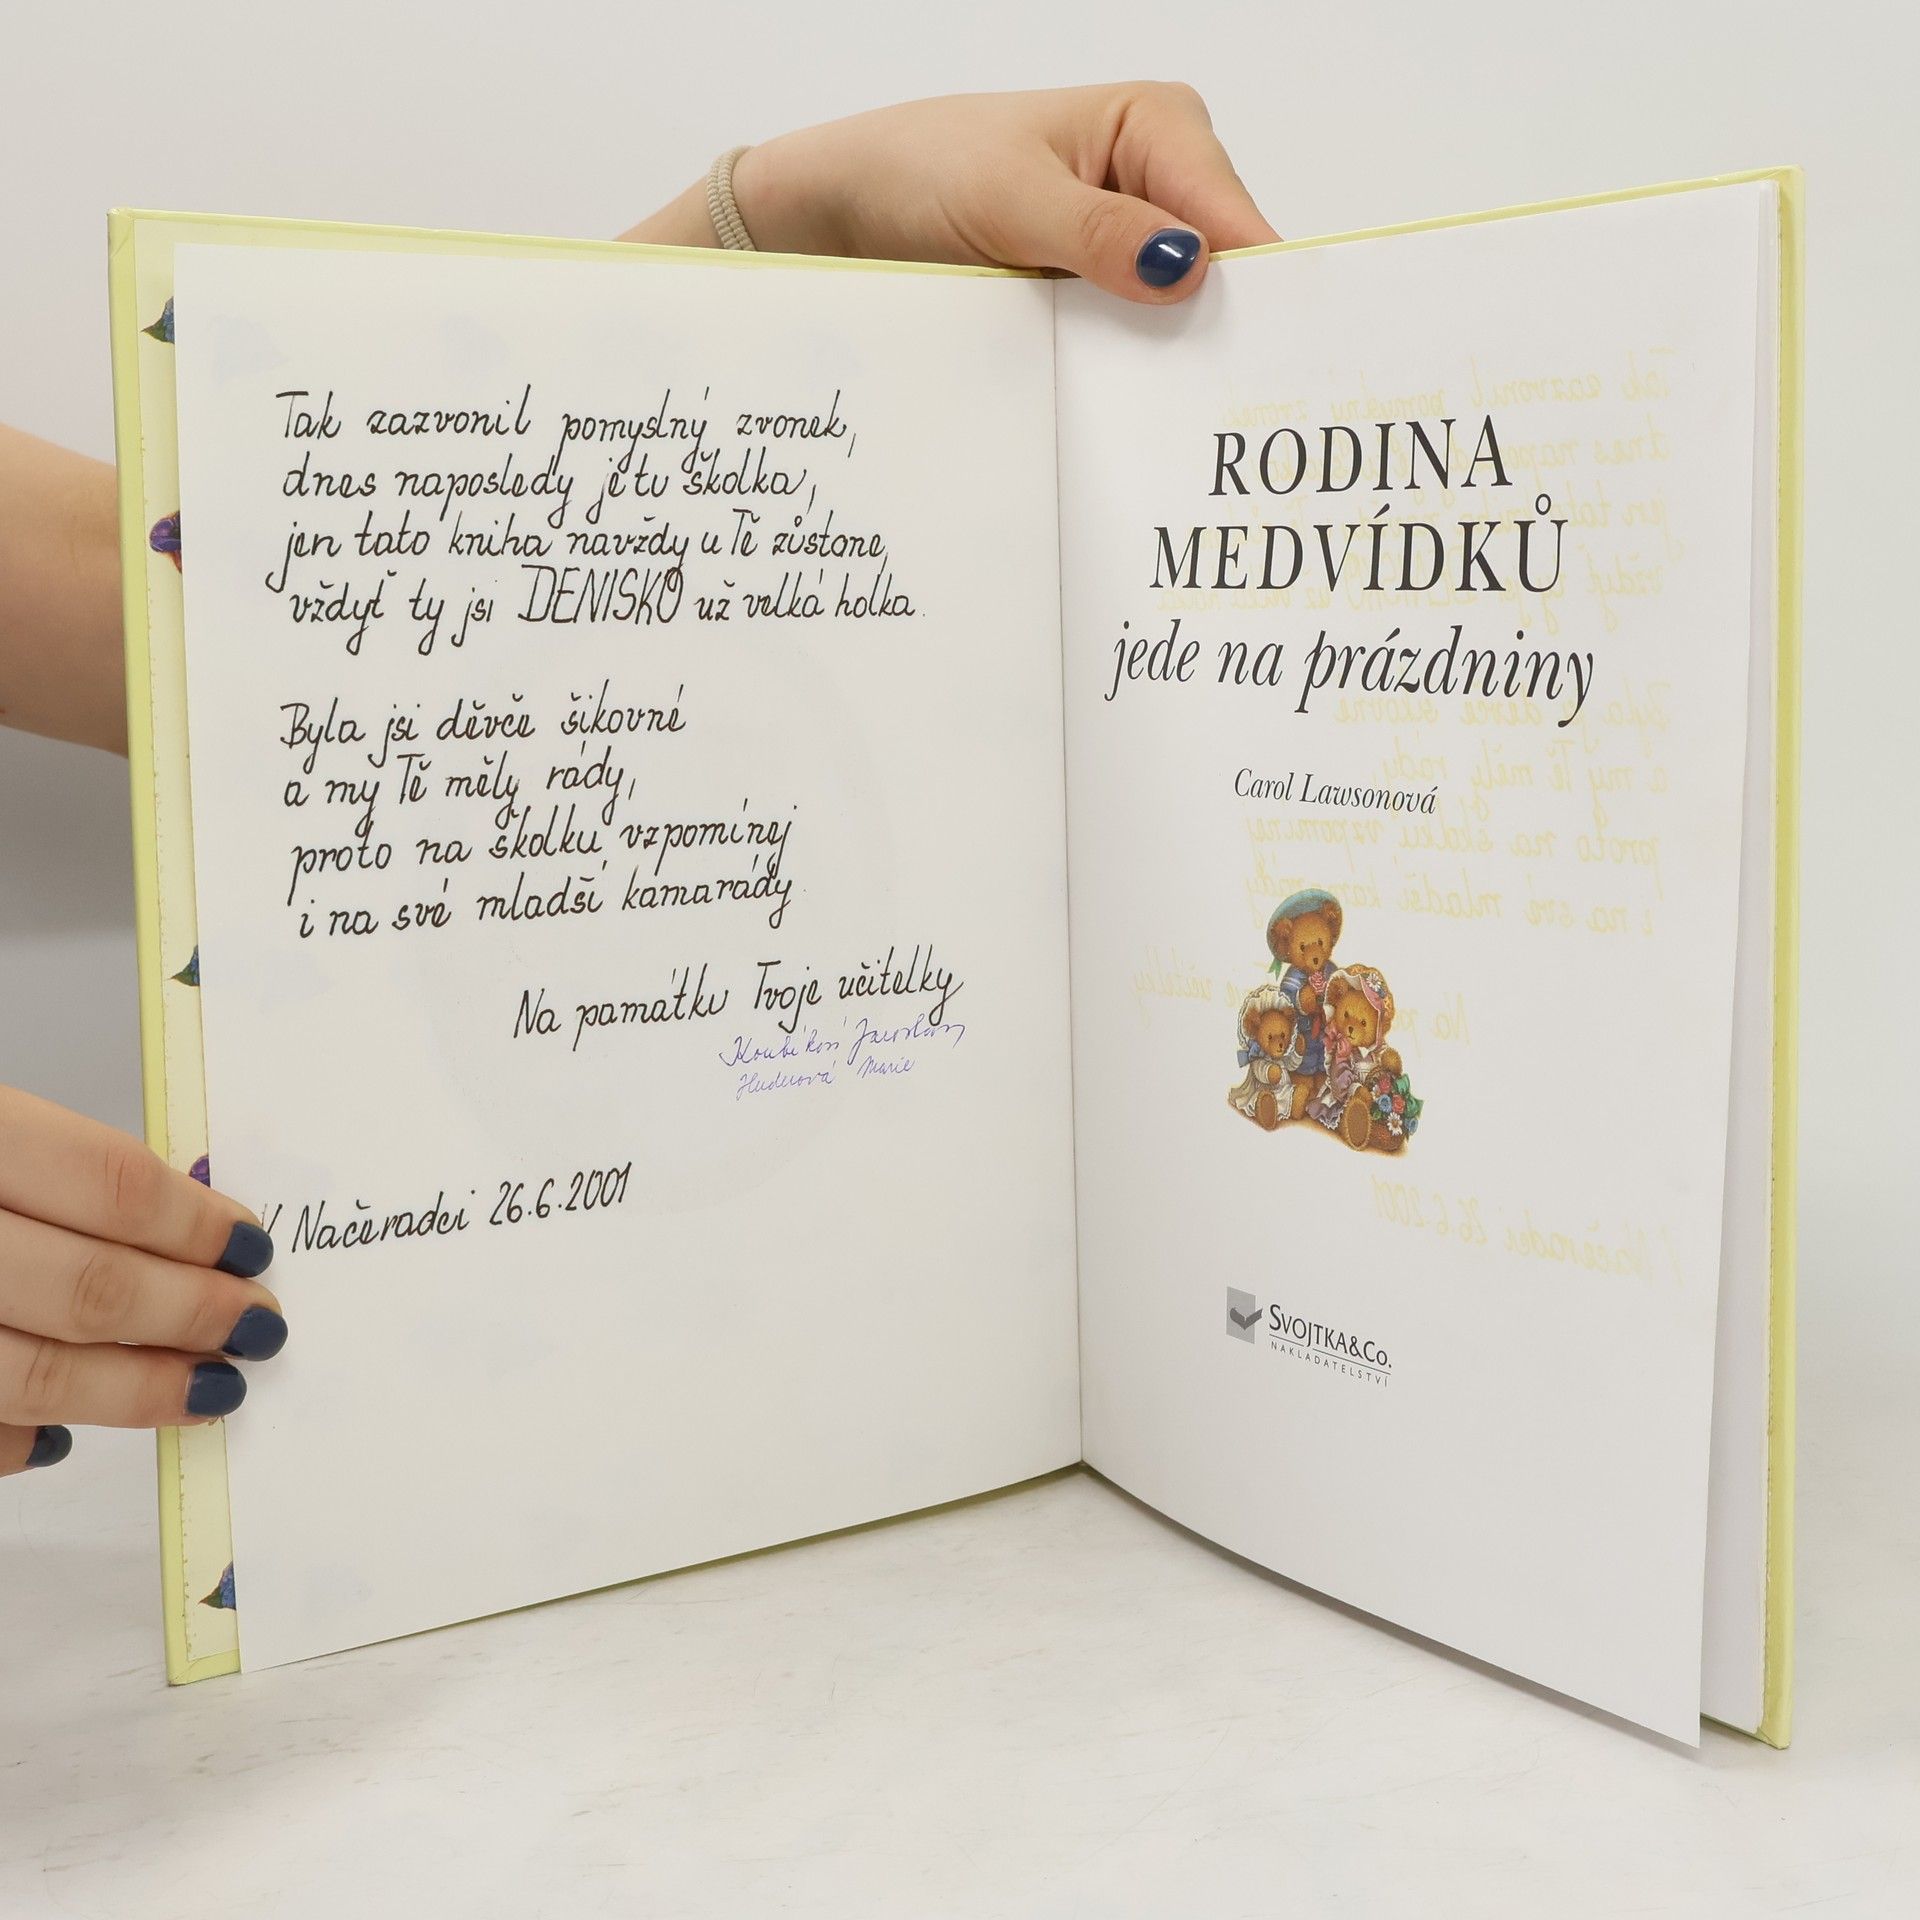 Tak zazvonil pomyslný zvonek,
dnes naposledy je tu školka,
jen tato kniha navždy u Tě zůstane,
vždyť ty jsi DENISKO už velká holka.
Byla jsi děvče šikovné
a my Tě měly rády,
proto na školku vzpomínej
i na své mladší kamarády.
Na památku Tvoje učitelky
Marie
V Načeradci 26.6.2001
RODINA
MEDVÍDKŮ
jede na prázdniny
Carol Lawsonová
SVOJTKA&CO.
NAKLADATELSTVÍ